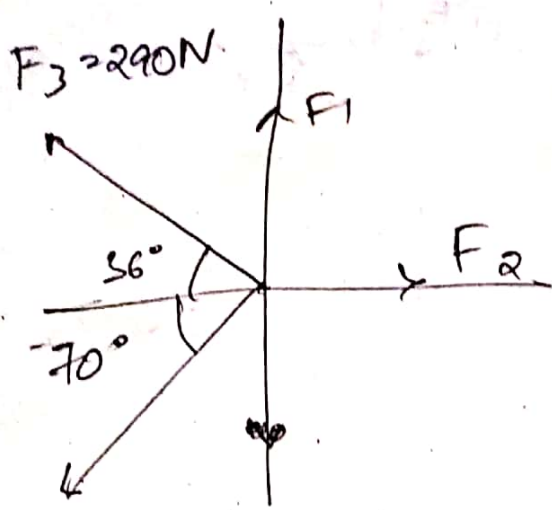 F3=290N
F1
36°
F2
70°